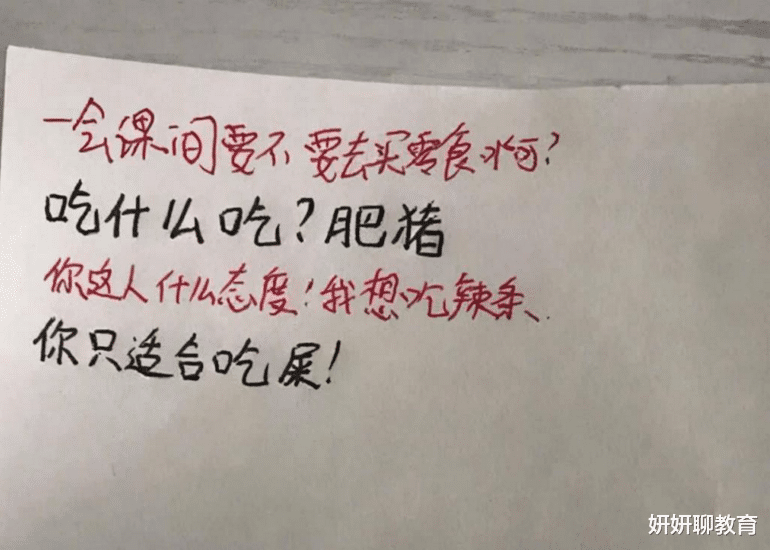 一会课间要不要去买零食啊?
吃什么吃?肥猪
你这人什么态度!我想吃辣条、
你只适合吃屎!
妍妍聊教育